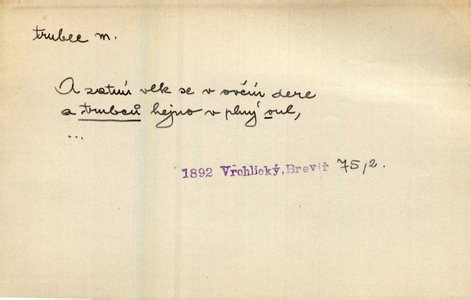 trubec m.
A zatím vlk se v ovčín dere
a trubců hejno v plný oul,
...
1892 Vrchlický, Brevíř 75,2.